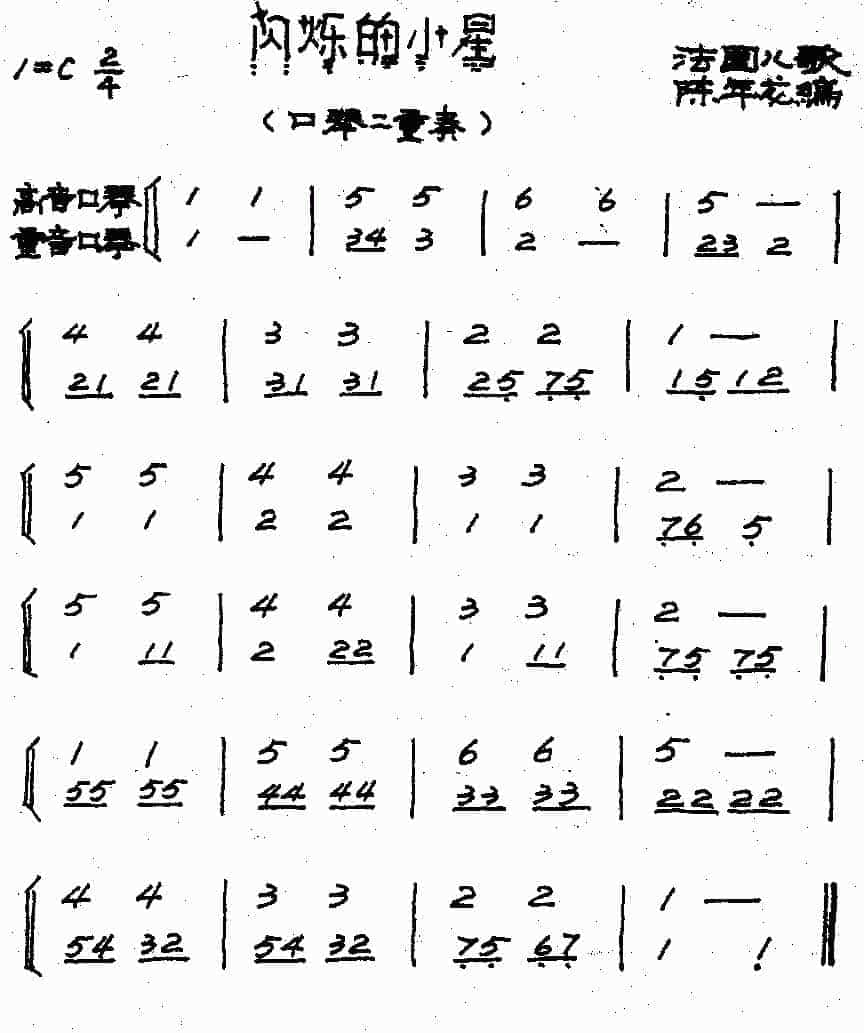 闪烁的小星
1=C 2/4
法国儿歌
陈年花编
(口琴二重奏)
高音口琴 1 1 | 5 5 | 6 6 | 5 — |
重音口琴 1 — | 34 3 | 2 — | 23 2 |
4 4 | 3 3 | 2 2 | 1 — |
21 21 | 31 31 | 25̣ 7̣5̣ | 15̣ 12 |
5 5 | 4 4 | 3 3 | 2 — |
1 1 | 2 2 | 1 1 | 7̣6̣ 5̣ |
5 5 | 4 4 | 3 3 | 2 — |
1 11 | 2 22 | 1 11 | 7̣5̣ 7̣5̣ |
1 1 | 5 5 | 6 6 | 5 — |
55 55 | 44 44 | 33 33 | 22 22 |
4 4 | 3 3 | 2 2 | 1 — ||
54 32 | 54 32 | 7̣5̣ 6̣7̣ | 1 1̣ ||